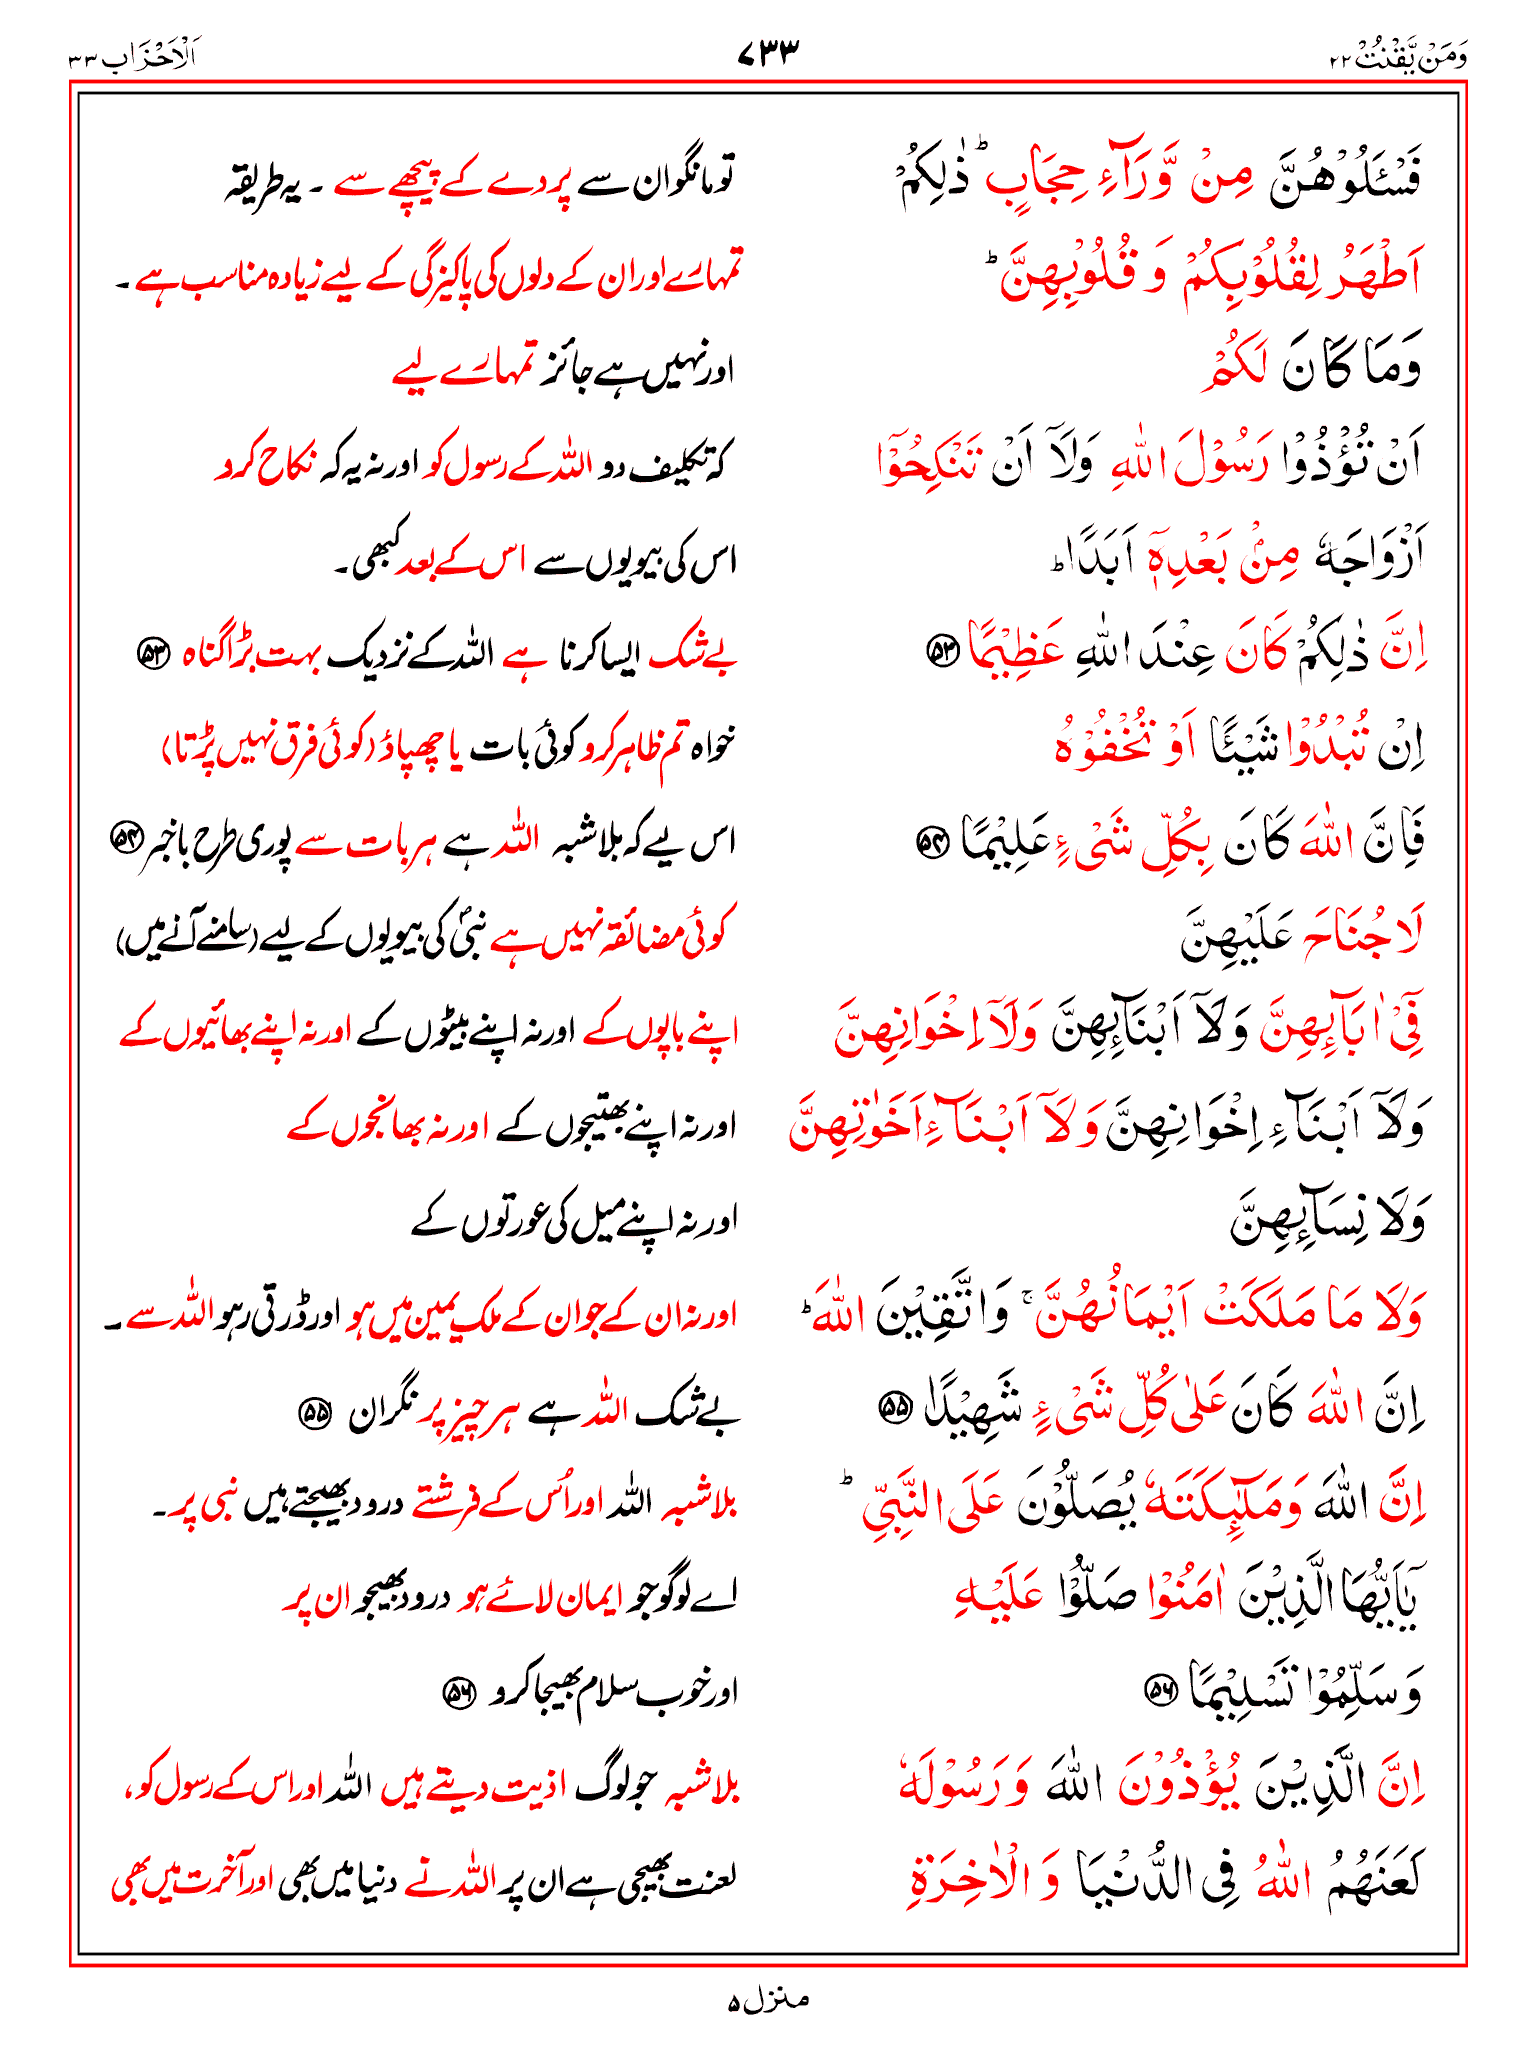 وَمَنْ يَّقْنُتْ ٢٢ ٧٣٣ اَلْاَحْزَاب ٣٣
فَسْـَٔلُوْهُنَّ مِنْ وَّرَآءِ حِجَابٍ ؕ ذٰلِكُمْ تو مانگو ان سے پردے کے پیچھے سے ۔ یہ طریقہ
اَطْهَرُ لِقُلُوْبِكُمْ وَ قُلُوْبِهِنَّ ؕ تمہارے اور ان کے دلوں کی پاکیزگی کے لیے زیادہ مناسب ہے ۔
وَمَا كَانَ لَكُمْ اور نہیں ہے جائز تمہارے لیے
اَنْ تُؤْذُوْا رَسُوْلَ اللّٰهِ وَلَآ اَنْ تَنْكِحُوْٓا کہ تکلیف دو اللہ کے رسول کو اور نہ یہ کہ نکاح کرو
اَزْوَاجَهٗ مِنْۢ بَعْدِهٖٓ اَبَدًا ؕ اس کی بیویوں سے اس کے بعد کبھی ۔
اِنَّ ذٰلِكُمْ كَانَ عِنْدَ اللّٰهِ عَظِيْمًا ۵۳ بے شک ایسا کرنا ہے اللہ کے نزدیک بہت بڑا گناہ ۵۳
اِنْ تُبْدُوْا شَيْـًٔا اَوْ تُخْفُوْهُ خواہ تم ظاہر کرو کوئی بات یا چھپاؤ (کوئی فرق نہیں پڑتا)
فَاِنَّ اللّٰهَ كَانَ بِكُلِّ شَىْءٍ عَلِيْمًا ۵۴ اس لیے کہ بلاشبہ اللہ ہے ہر بات سے پوری طرح باخبر ۵۴
لَا جُنَاحَ عَلَيْهِنَّ کوئی مضائقہ نہیں ہے نبیؐ کی بیویوں کے لیے (سامنے آنے میں)
فِىْٓ اٰبَآئِهِنَّ وَلَآ اَبْنَآئِهِنَّ وَلَآ اِخْوَانِهِنَّ اپنے باپوں کے اور نہ اپنے بیٹوں کے اور نہ اپنے بھائیوں کے
وَلَآ اَبْنَآءِ اِخْوَانِهِنَّ وَلَآ اَبْنَآءِ اَخَوٰتِهِنَّ اور نہ اپنے بھتیجوں کے اور نہ بھانجوں کے
وَلَا نِسَآئِهِنَّ اور نہ اپنے میل کی عورتوں کے
وَلَا مَا مَلَكَتْ اَيْمَانُهُنَّ ۚ وَاتَّقِيْنَ اللّٰهَ ؕ اور نہ ان کے جو ان کے ملک یمین میں ہو اور ڈرتی رہو اللہ سے ۔
اِنَّ اللّٰهَ كَانَ عَلٰى كُلِّ شَىْءٍ شَهِيْدًا ۵۵ بے شک اللہ ہے ہر چیز پر نگران ۵۵
اِنَّ اللّٰهَ وَمَلٰٓئِكَتَهٗ يُصَلُّوْنَ عَلَى النَّبِىِّ ؕ بلاشبہ اللہ اور اُس کے فرشتے درود بھیجتے ہیں نبی پر ۔
يٰٓاَيُّهَا الَّذِيْنَ اٰمَنُوْا صَلُّوْا عَلَيْهِ اے لوگو جو ایمان لائے ہو درود بھیجو ان پر
وَسَلِّمُوْا تَسْلِيْمًا ۵۶ اور خوب سلام بھیجا کرو ۵۶
اِنَّ الَّذِيْنَ يُؤْذُوْنَ اللّٰهَ وَرَسُوْلَهٗ بلاشبہ جو لوگ اذیت دیتے ہیں اللہ اور اس کے رسول کو،
لَعَنَهُمُ اللّٰهُ فِى الدُّنْيَا وَ الْاٰخِرَةِ لعنت بھیجی ہے ان پر اللہ نے دنیا میں بھی اور آخرت میں بھی
منزل ۵